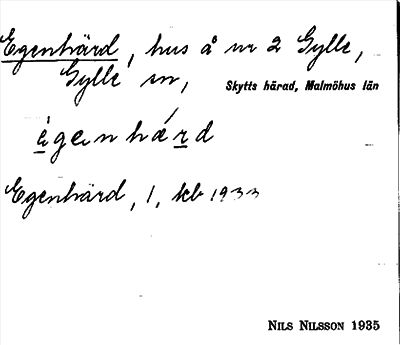 Egenhärd, hus å nr 2 Gylle,
Gylle sn, Skytts härad, Malmöhus län
Egenhärd, 1, kb 1933
NILS NILSSON 1935